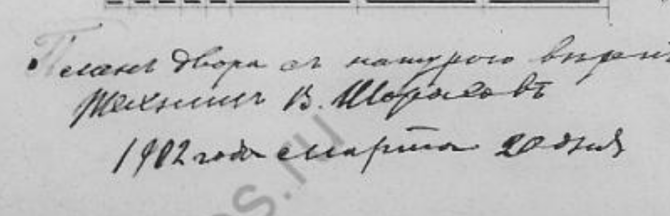 Планъ двора съ натурою вѣренъ
Техникъ В. Шораховъ
1902 года марта 20 дня
s.ru